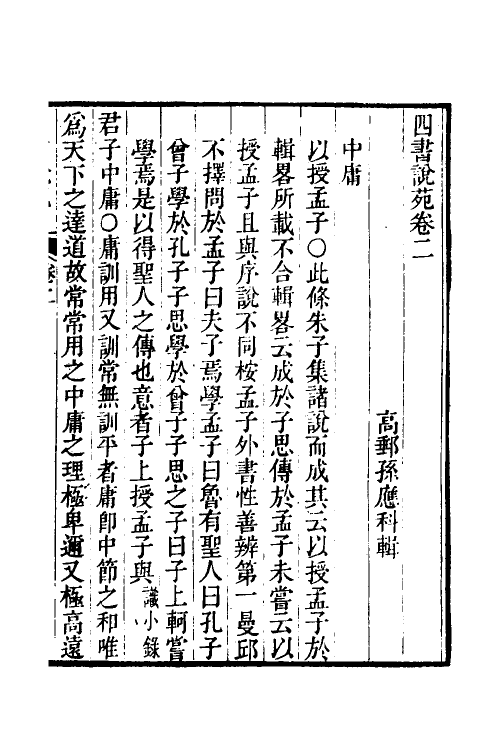 四書說苑卷二
高郵孫應科輯
中庸
以授孟子○此條朱子集諸說而成其云以授孟子於
輯畧所載不合輯畧云成於子思傳於孟子未嘗云以
授孟子且與序說不同桉孟子外書性善辨第一曼邱
不擇問於孟子曰夫子焉學孟子曰魯有聖人曰孔子
曾子學於孔子子思學於曾子子思之子曰子上軻嘗
學焉是以得聖人之傳也意者子上授孟子與 識小錄
君子中庸○庸訓用又訓常無訓平者庸卽中節之和唯
爲天下之達道故常常用之中庸之理極卑邇又極高遠
卷二